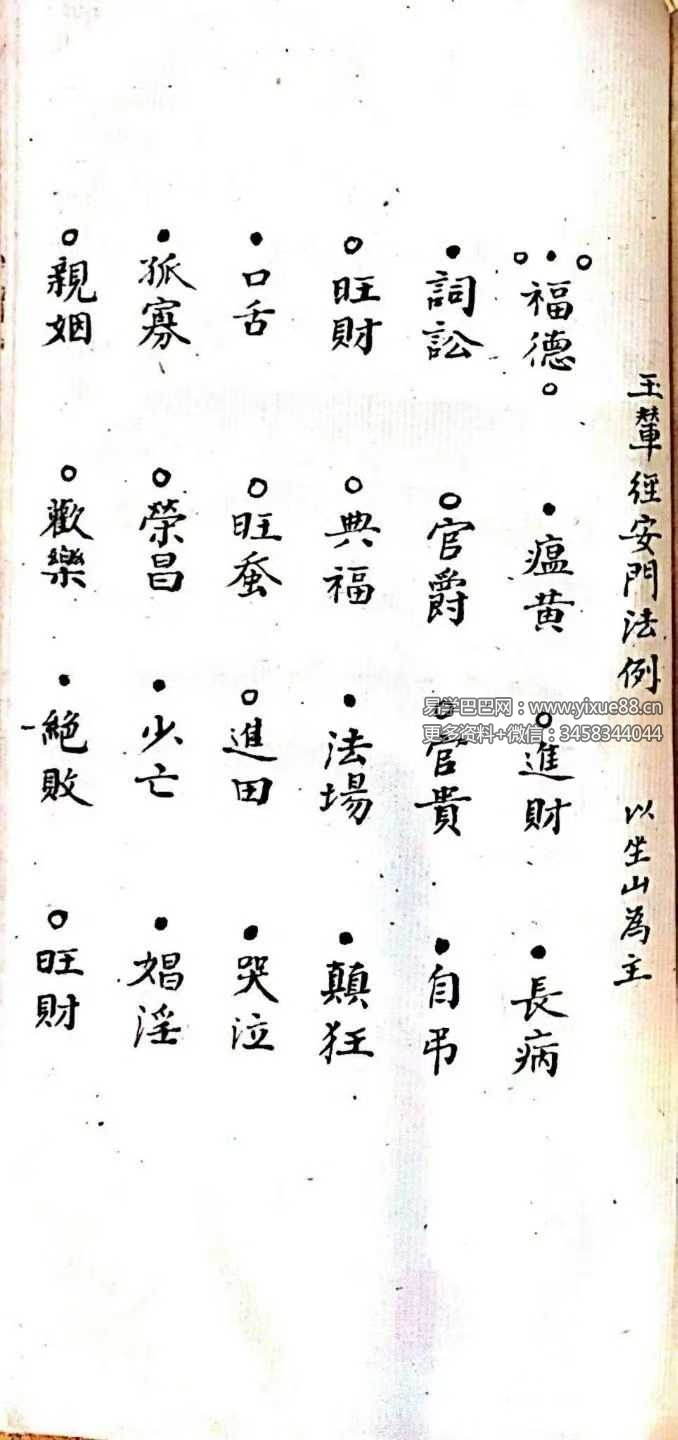 玉輦經安門法例 以坐山為主
○•○福德○ •瘟黄 ○進財 •長病
•詞訟 ○官爵 ○官貴 •自吊
○旺財 ○典福 •法場 •顛狂
•口舌 ○旺蚕 ○進田 •哭泣
•孤寡 ○榮昌 •少亡 •娼淫
○親姻 ○歡樂 •絕敗 ○旺財
易学巴巴网：www.yixue88.cn
更多资料+微信：3458344044